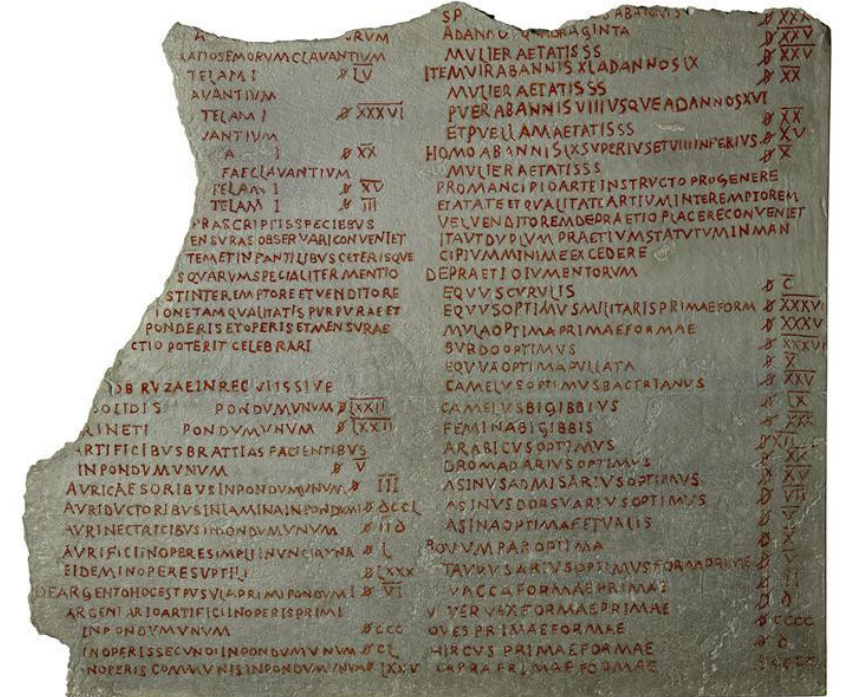 TELAM I 𐆖 LV
AVANTIVM
TELAM I 𐆖 XXXVI
VANTIVM
A I 𐆖 XX
FAECLAVANTIVM
TELAM I 𐆖 XV
TELAM I 𐆖 III
PRASCRIPTISSPECIEBVS
ENSVRASOBSERVARICONVENIET
TEMETINPANTILIBVSCETERISQVE
SQVARVMSPECIALITERMENTIO
STINTEREMPTOREETVENDITORE
IONETAMQVALITATISPVRPVRAEET
PONDERISETOPERISETMENSVRAE
CTIOPOTERITCELEBRARI
OBRVZAEINREG
SOLIDIS PONDVMVNVM 𐆖 LXXII
RINETI PONDVMVNVM 𐆖 LXXII
ARTIFICIBVSBRATTIASFACIENTIBVS
INPONDVMVNVM 𐆖 V
AVRICAESORIBVSINPONDVMVNVM 𐆖 III
AVRIDVCTORIBVSINLAMINAINPONDVMI 𐆖 DCCL
AVRINECTRICIBVSINPONDVMVNVM
AVRIFICIINOPERESIMPLIINVNCIAVNA 𐆖 L
EIDEMINOPERESVPTILI 𐆖 LXXX
DEARGENTOHOCESTPVSVLAPRIMIPONDVMI 𐆖 VI
ARGENTARIOARTIFICIINOPERISPRIMI
INPONDVMVNVM 𐆖 CCC
INOPERISSECVNDIINPONDVMVNVM 𐆖 CL
NOPERISCOMMVNISINPONDVMVNVM 𐆖 LXXV
ADANN QVADRAGINTA 𐆖 XXV
MVLIERAETATISSS 𐆖 XXV
ITEMVIRABANNISXLADANNOSLX 𐆖 XX
MVLIERAETATISSS
PVERABANNISVIIIVSQVEADANNOSXVI
ETPVELLAMAETATISSS 𐆖 XX
HOMOABANNISLXSVPERIVSETVIIIINFERIVS 𐆖 XV
MVLIERAETATISSS 𐆖 X
PROMANCIPIOARTEINSTRVCTOPROGENERE
ETATATEETQVALITATEARTIVMINTEREMPTOREM
VELVENDITOREMDEPRAETIOPLACERECONVENIET
ITAVTDVPLVMPRAETIVMSTATVTVMINMAN
CIPIVMMINIMEEXCEDERE
DEPRAETIOIVMENTORVM
EQVVSCVRVLIS 𐆖 C
EQVVSOPTIMVSMILITARISPRIMAEFORM 𐆖 XXXVI
MVLAOPTIMAPRIMAEFORMAE 𐆖 XXXV
BVRDOOPTIMVS 𐆖 XXXVI
EQVVAOPTIMAPVLLATA 𐆖 X
CAMELVSOPTIMVSBACTRIANVS 𐆖 XXV
CAMELVSBIGIBBIVS 𐆖 LX
FEMINABIGIBBIS
ARABICVSOPTIMVS 𐆖 XII
DROMADARIVSOPTIMVS 𐆖 XX
ASINVSADMISARIVSOPTIMVS 𐆖 XV
ASINVSDORSVARIVSOPTIMVS 𐆖 VII
ASINAOPTIMAFETVALIS
BOVVMPAROPTIMA
TAVRVSARIVSOPTIMVSFORMPRIME
VACCAFORMAEPRIMAE
VERVEXFORMAEPRIMAE
OVESPRIMAEFORMAE 𐆖 CCCC
HIRCVSPRIMAEFORMAE
CAPRAPRIMAEFORMAE